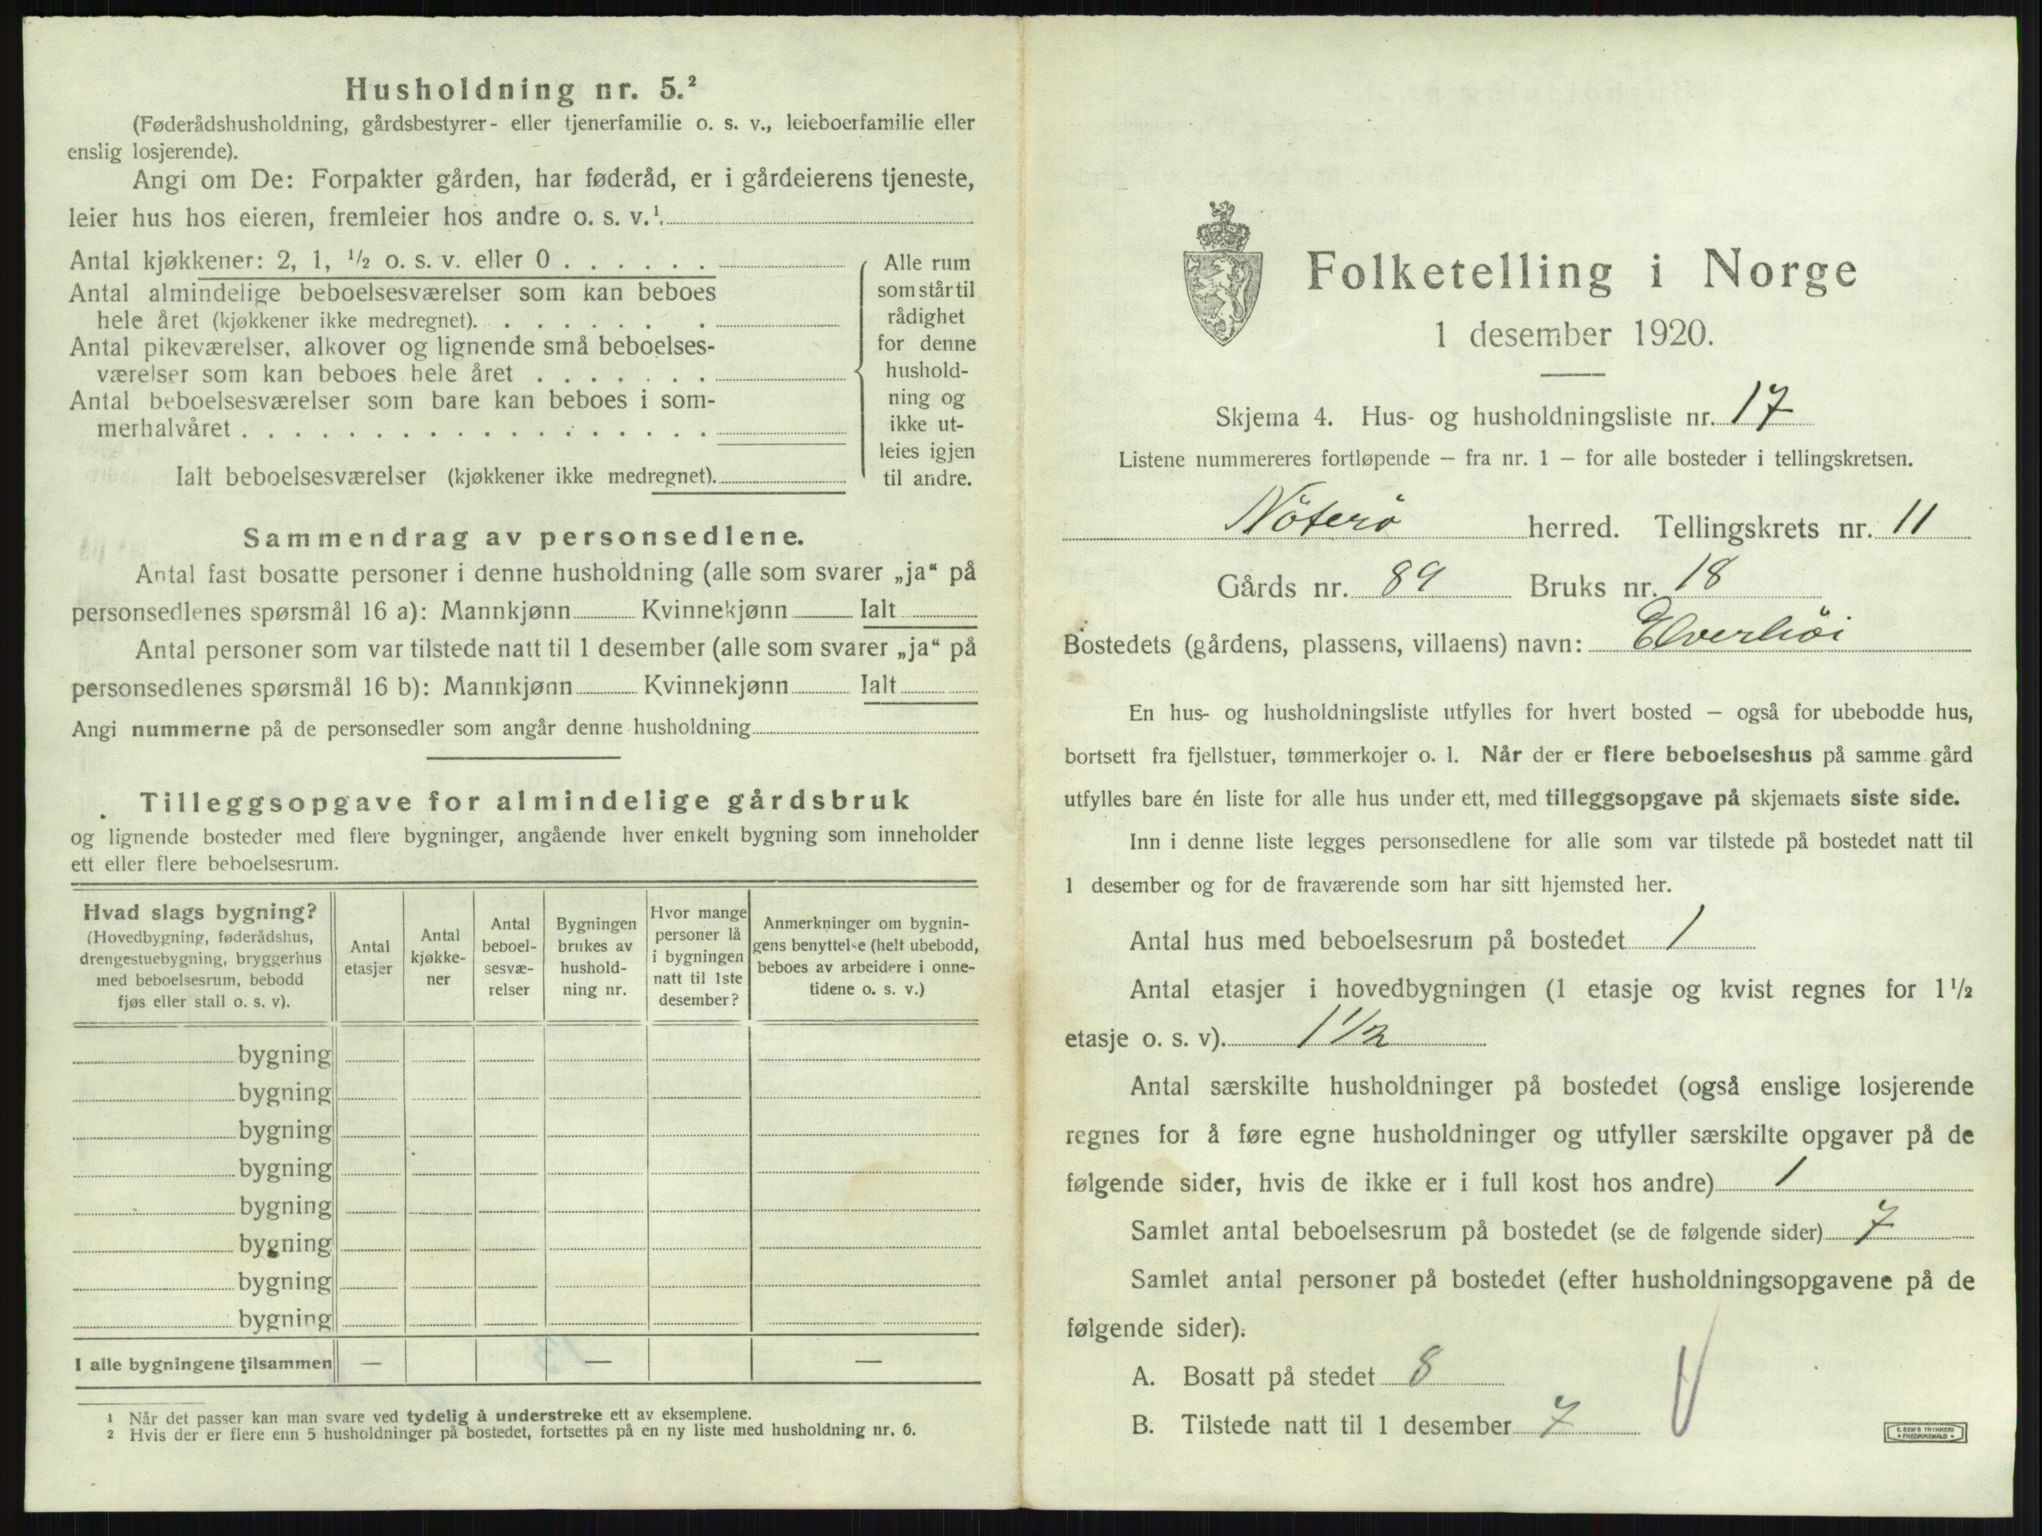 Husholdning nr. 5.²
(Føderådshusholdning, gårdsbestyrer- eller tjenerfamilie o. s. v., leieboerfamilie eller
enslig losjerende).
Angi om De: Forpakter gården, har føderåd, er i gårdeierens tjeneste,
leier hus hos eieren, fremleier hos andre o. s. v.¹.
Antal kjøkkener: 2, 1, ½ o. s. v. eller 0 . . . . . .
Antal almindelige beboelsesværelser som kan beboes
hele året (kjøkkener ikke medregnet). . . . . . . .
Antal pikeværelser, alkover og lignende små beboelses-
værelser som kan beboes hele året . . . . . . .
Antal beboelsesværelser som bare kan beboes i som-
merhalvåret . . . . . . . . . . . . . . . . . .
Ialt beboelsesværelser (kjøkkener ikke medregnet).
Alle rum
som står til
rådighet
for denne
hushold-
ning og
ikke ut-
leies igjen
til andre.
Sammendrag av personsedlene.
Antal fast bosatte personer i denne husholdning (alle som svarer „ja“ på
personsedlenes spørsmål 16 a): Mannkjønn Kvinnekjønn Ialt
Antal personer som var tilstede natt til 1 desember (alle som svarer „ja“ på
personsedlenes spørsmål 16 b): Mannkjønn Kvinnekjønn Ialt
Angi nummerne på de personsedler som angår denne husholdning
Tilleggsopgave for almindelige gårdsbruk
og lignende bosteder med flere bygninger, angående hver enkelt bygning som inneholder
ett eller flere beboelsesrum.
Hvad slags bygning?
(Hovedbygning, føderådshus,
drengestuebygning, bryggerhus
med beboelsesrum, bebodd
fjøs eller stall o. s. v).
Antal
etasjer
Antal
kjøkke-
ner
Antal
beboel-
sesvæ-
relser
Bygningen
brukes av
hushold-
ning nr.
Hvor mange
personer lå
i bygningen
natt til 1ste
desember?
Anmerkninger om bygnin-
gens benyttelse (helt ubebodd,
beboes av arbeidere i onne-
tidene o. s. v.)
bygning
bygning
bygning
bygning
bygning
bygning
bygning
bygning
I alle bygningene tilsammen — — —
¹ Når det passer kan man svare ved tydelig å understreke ett av eksemplene.
² Hvis der er flere enn 5 husholdninger på bostedet, fortsettes på en ny liste med husholdning nr. 6.
Folketelling i Norge
1 desember 1920.
Skjema 4. Hus- og husholdningsliste nr. 17
Listene nummereres fortløpende – fra nr. 1 – for alle bosteder i tellingskretsen.
Nöterö herred. Tellingskrets nr. 11
Gårds nr. 89 Bruks nr. 18
Bostedets (gårdens, plassens, villaens) navn: Elverhöi
En hus- og husholdningsliste utfylles for hvert bosted – også for ubebodde hus,
bortsett fra fjellstuer, tømmerkojer o. l. Når der er flere beboelseshus på samme gård
utfylles bare én liste for alle hus under ett, med tilleggsopgave på skjemaets siste side.
Inn i denne liste legges personsedlene for alle som var tilstede på bostedet natt til
1 desember og for de fraværende som har sitt hjemsted her.
Antal hus med beboelsesrum på bostedet 1
Antal etasjer i hovedbygningen (1 etasje og kvist regnes for 1½
etasje o. s. v). 1 1/2
Antal særskilte husholdninger på bostedet (også enslige losjerende
regnes for å føre egne husholdninger og utfyller særskilte opgaver på de
følgende sider, hvis de ikke er i full kost hos andre) 1
Samlet antal beboelsesrum på bostedet (se de følgende sider) 7
Samlet antal personer på bostedet (efter husholdningsopgavene på de
følgende sider).
A. Bosatt på stedet 8
B. Tilstede natt til 1 desember 7
E. SEM'S TRYKKERI
FREDRIKSHALD